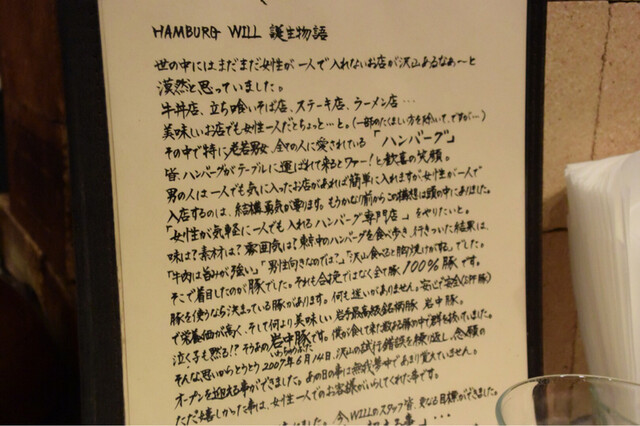 HAMBURG WILL 誕生物語
世の中にはまだまだ女性が一人で入れないお店が沢山あるなぁ〜と
漠然と思っていました。
牛丼店、立ち喰いそば店、ステーキ店、ラーメン店…
美味しいお店でも女性一人だとちょっと…と。(一部のたくましい方を除いて、ですが…)
その中で特に老若男女、全ての人に愛されている「ハンバーグ」
皆、ハンバーグがテーブルに運ばれて来るとワァー!と歓喜の笑顔。
男の人は一人でも気に入ったお店があれば簡単に入れますが女性が一人で
入店するのは、結構勇気が要ります。もうかなり前からこの構想は頭の中にありました。
「女性が気軽に一人でも入れるハンバーグ専門店。」をやりたいと。
味は?素材は?雰囲気は?東京中のハンバーグを食べ歩き、行きついた結果は、
「牛肉は旨みが強い」「男性向きなのでは?」「沢山食べると胸焼けが…」でした。
そこで着目したのが豚でした。それも合挽ではなく全て豚100%豚です。
豚を使うなら決まっている豚があります。何も迷いがありません。安心で安全(SPF豚)
で栄養価が高く、そして何より美味しい岩手最高級銘柄豚 岩中豚。
泣く子も黙る!?そうあの岩中豚です。僕が食して来た数ある豚の中で群を抜いていました。
いわちゅうぶた
そんな思いからとうとう2007年6月14日、沢山の試行錯誤を繰り返し、念願の
オープンを迎える事ができました。あの日の事は無我夢中であまり覚えていません。
ただ1番嬉しかった事は、女性一人でのお客様がいらしてくれた事です。
ました。今、WILLのスタッフ皆、更なる目標ができました。